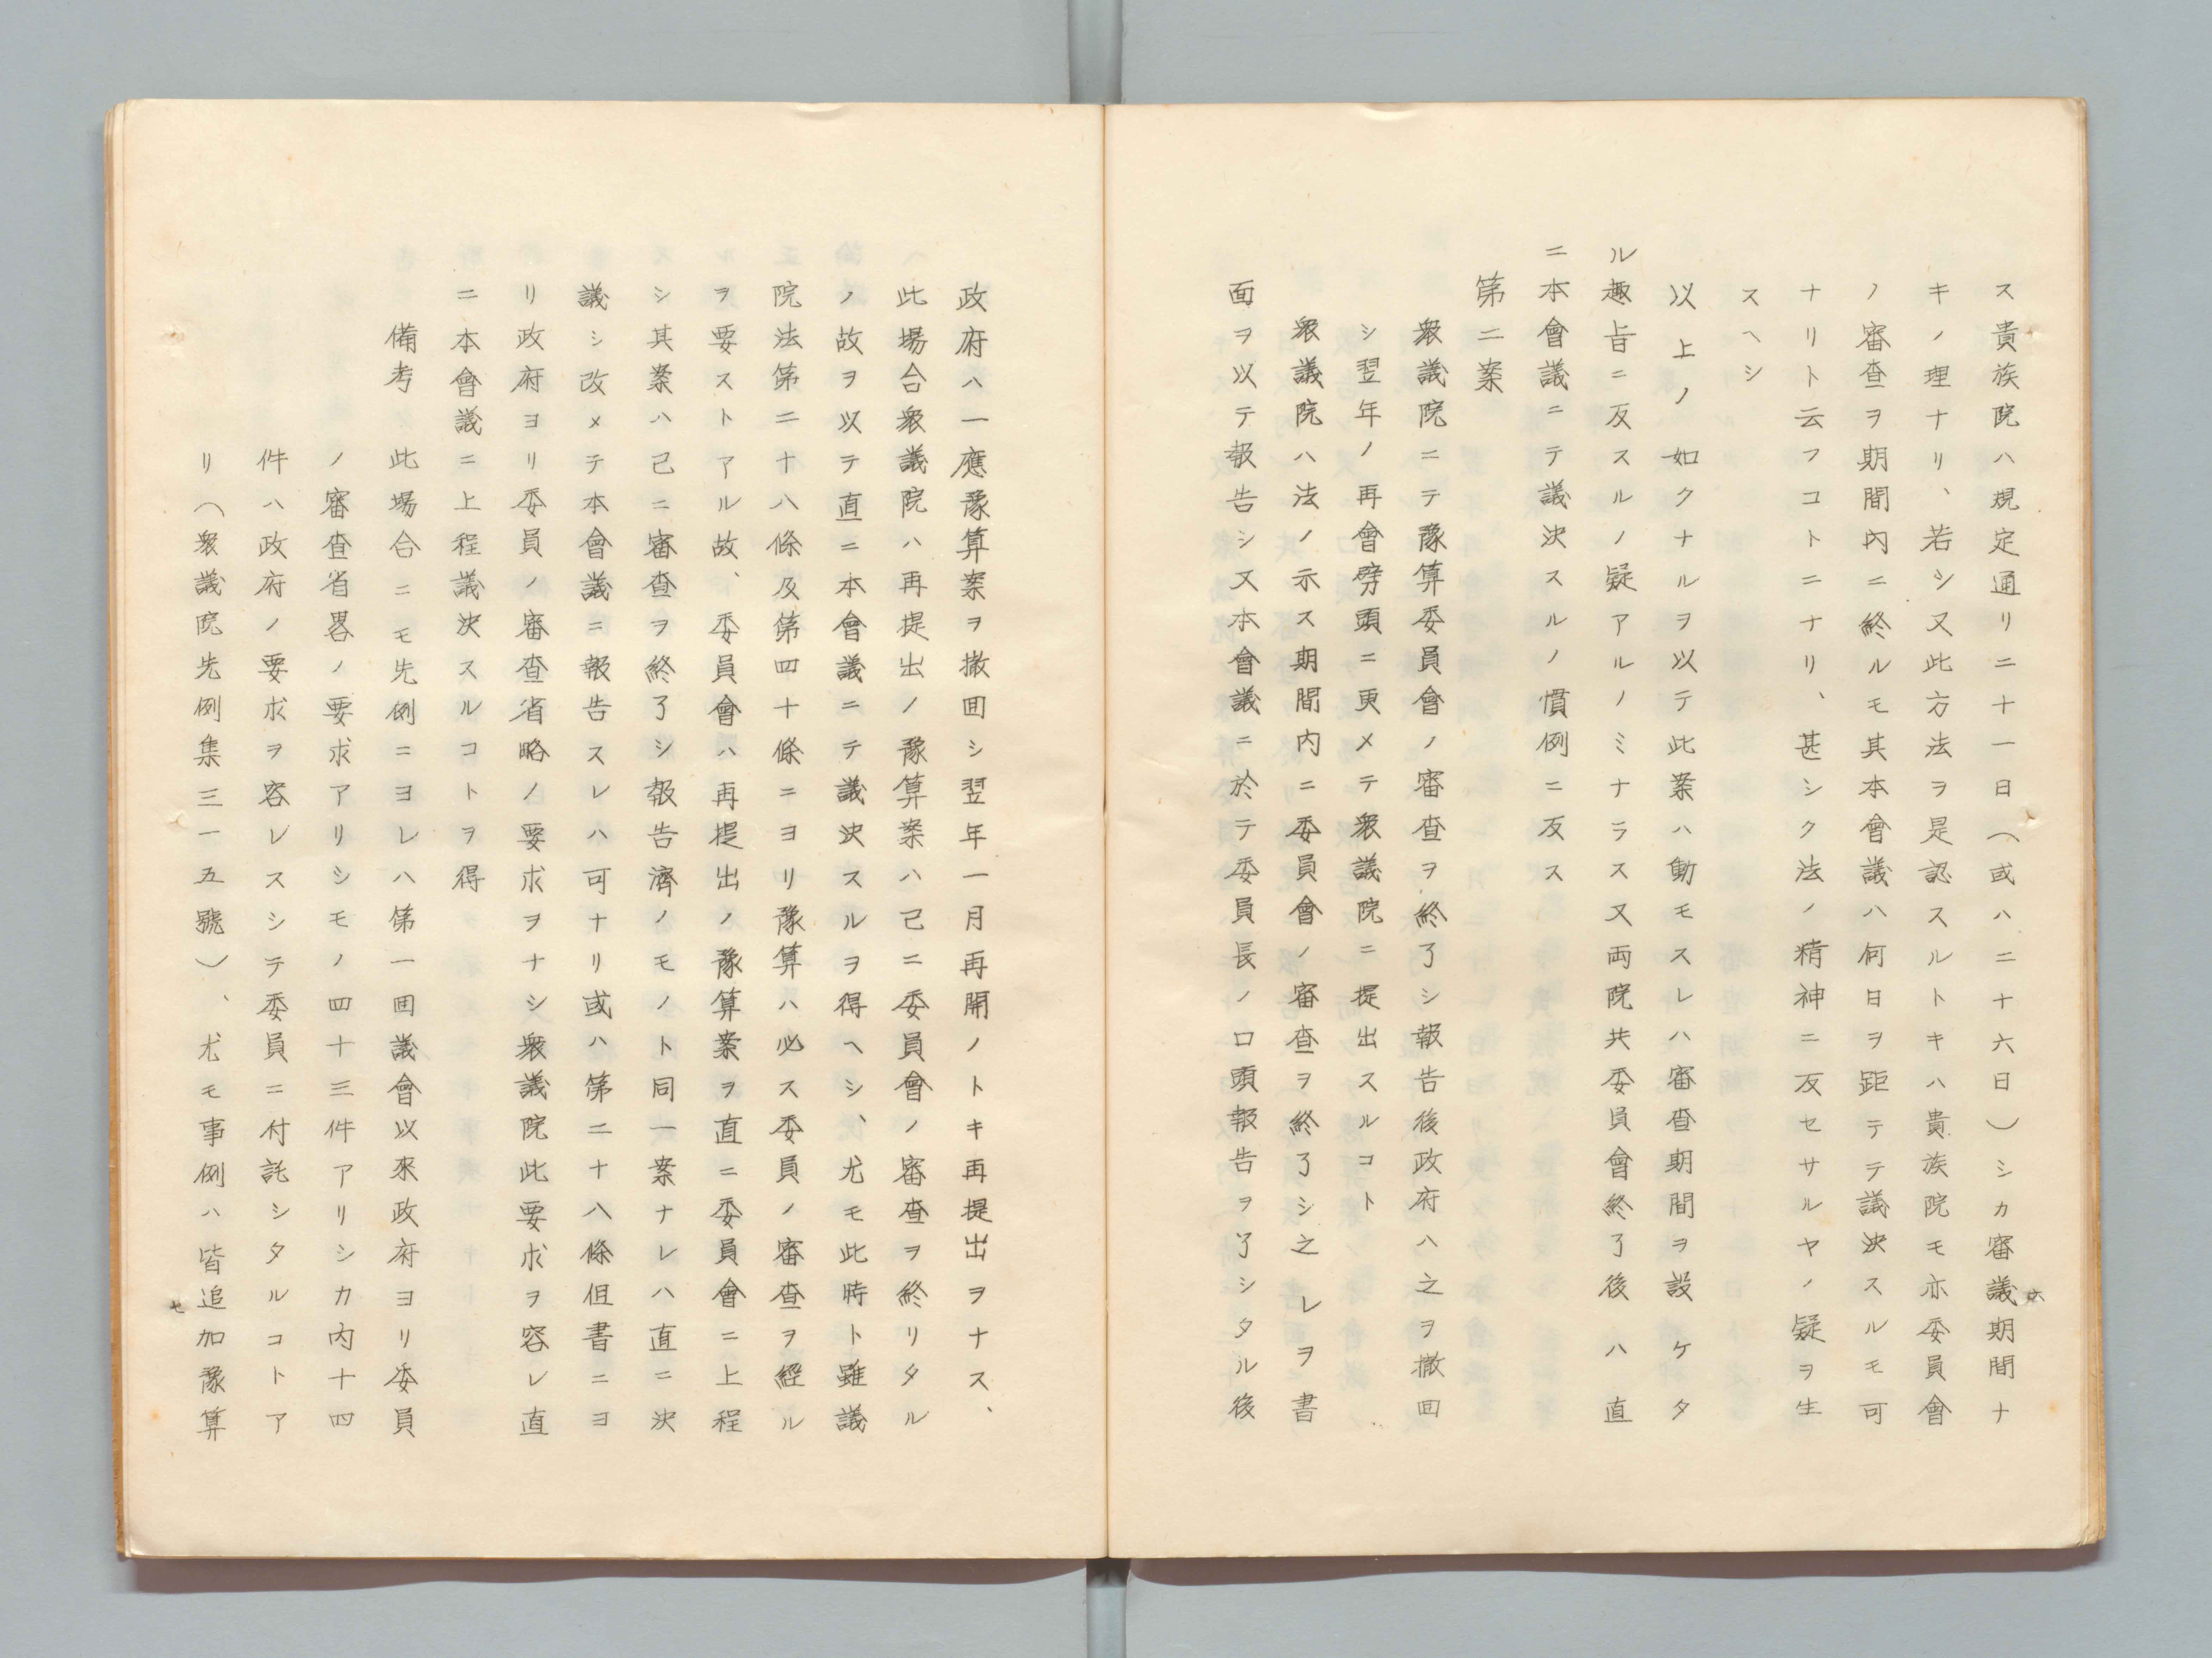 ス貴族院ハ規定通リ二十一日（或ハ二十六日）シカ審議期間ナ
キノ理ナリ、若シ又此方法ヲ是認スルトキハ貴族院モ亦委員會
ノ審査ヲ期間內ニ終ルモ其本會議ハ何日ヲ距テテ議決スルモ可
ナリト云フコトニナリ、甚シク法ノ精神ニ反セサルヤノ疑ヲ生
スヘシ
以上ノ如クナルヲ以テ此案ハ動モスレハ審査期間ヲ設ケタ
ル趣旨ニ反スルノ疑アルノミナラス又両院共委員會終了後ハ直
ニ本會議ニテ議決スルノ慣例ニ反ス
第二案
衆議院ニテ豫算委員會ノ審査ヲ終了シ報告後政府ハ之ヲ撤回
シ翌年ノ再會劈頭ニ更メテ衆議院ニ提出スルコト
衆議院ハ法ノ示ス期間内ニ委員會ノ審査ヲ終了シ之レヲ書
面ヲ以テ報告シ又本會議ニ於テ委員長ノ口頭報告ヲ了シタル後
六
政府ハ一應豫算案ヲ撤回シ翌年一月再開ノトキ再提出ヲナス、
此場合衆議院ハ再提出ノ豫算案ハ己ニ委員會ノ審査ヲ終リタル
ノ故ヲ以テ直ニ本會議ニテ議決スルヲ得ヘシ、尤モ此時ト雖議
院法第二十八條及第四十條ニヨリ豫算ハ必ス委員ノ審査ヲ經ル
ヲ要ストアル故、委員會ハ再提出ノ豫算案ヲ直ニ委員會ニ上程
シ其案ハ己ニ審査ヲ終了シ報告濟ノモノト同一案ナレハ直ニ決
議シ改メテ本會議ニ報告スレハ可ナリ或ハ第二十八條但書ニヨ
リ政府ヨリ委員ノ審査省略ノ要求ヲナシ衆議院此要求ヲ容レ直
ニ本會議ニ上程議決スルコトヲ得
備考　此場合ニモ先例ニヨレハ第一回議會以來政府ヨリ委員
ノ審査省畧ノ要求アリシモノ四十三件アリシカ内十四
件ハ政府ノ要求ヲ容レスシテ委員ニ付託シタルコトア
リ（衆議院先例集三一五號）、尤モ事例ハ皆追加豫算
七